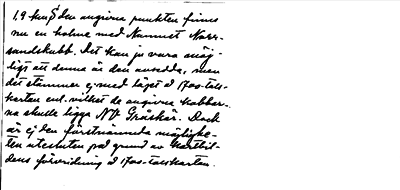 1,9 km S den angivna punkten finns
nu en holme med Namnet Norr-
sandskubb. Det kan ju vara möj-
ligt att denna är den avsedda, men
det stämmer ej med läget å 1700-tals-
kartan enl. vilket de angivna kobbar-
na skulle ligga NV Gråskär. Dock
är ej den förstnämnda möjlighe-
ten utesluten på grund av kartbil-
dens förvridning å 1700-talskartan.